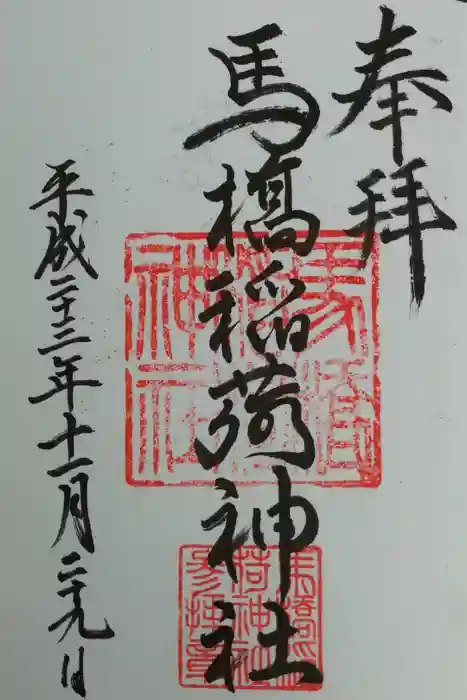 奉拝
馬橋稲荷神社
平成二十三年十一月二十九日
馬橋
稲荷
神社